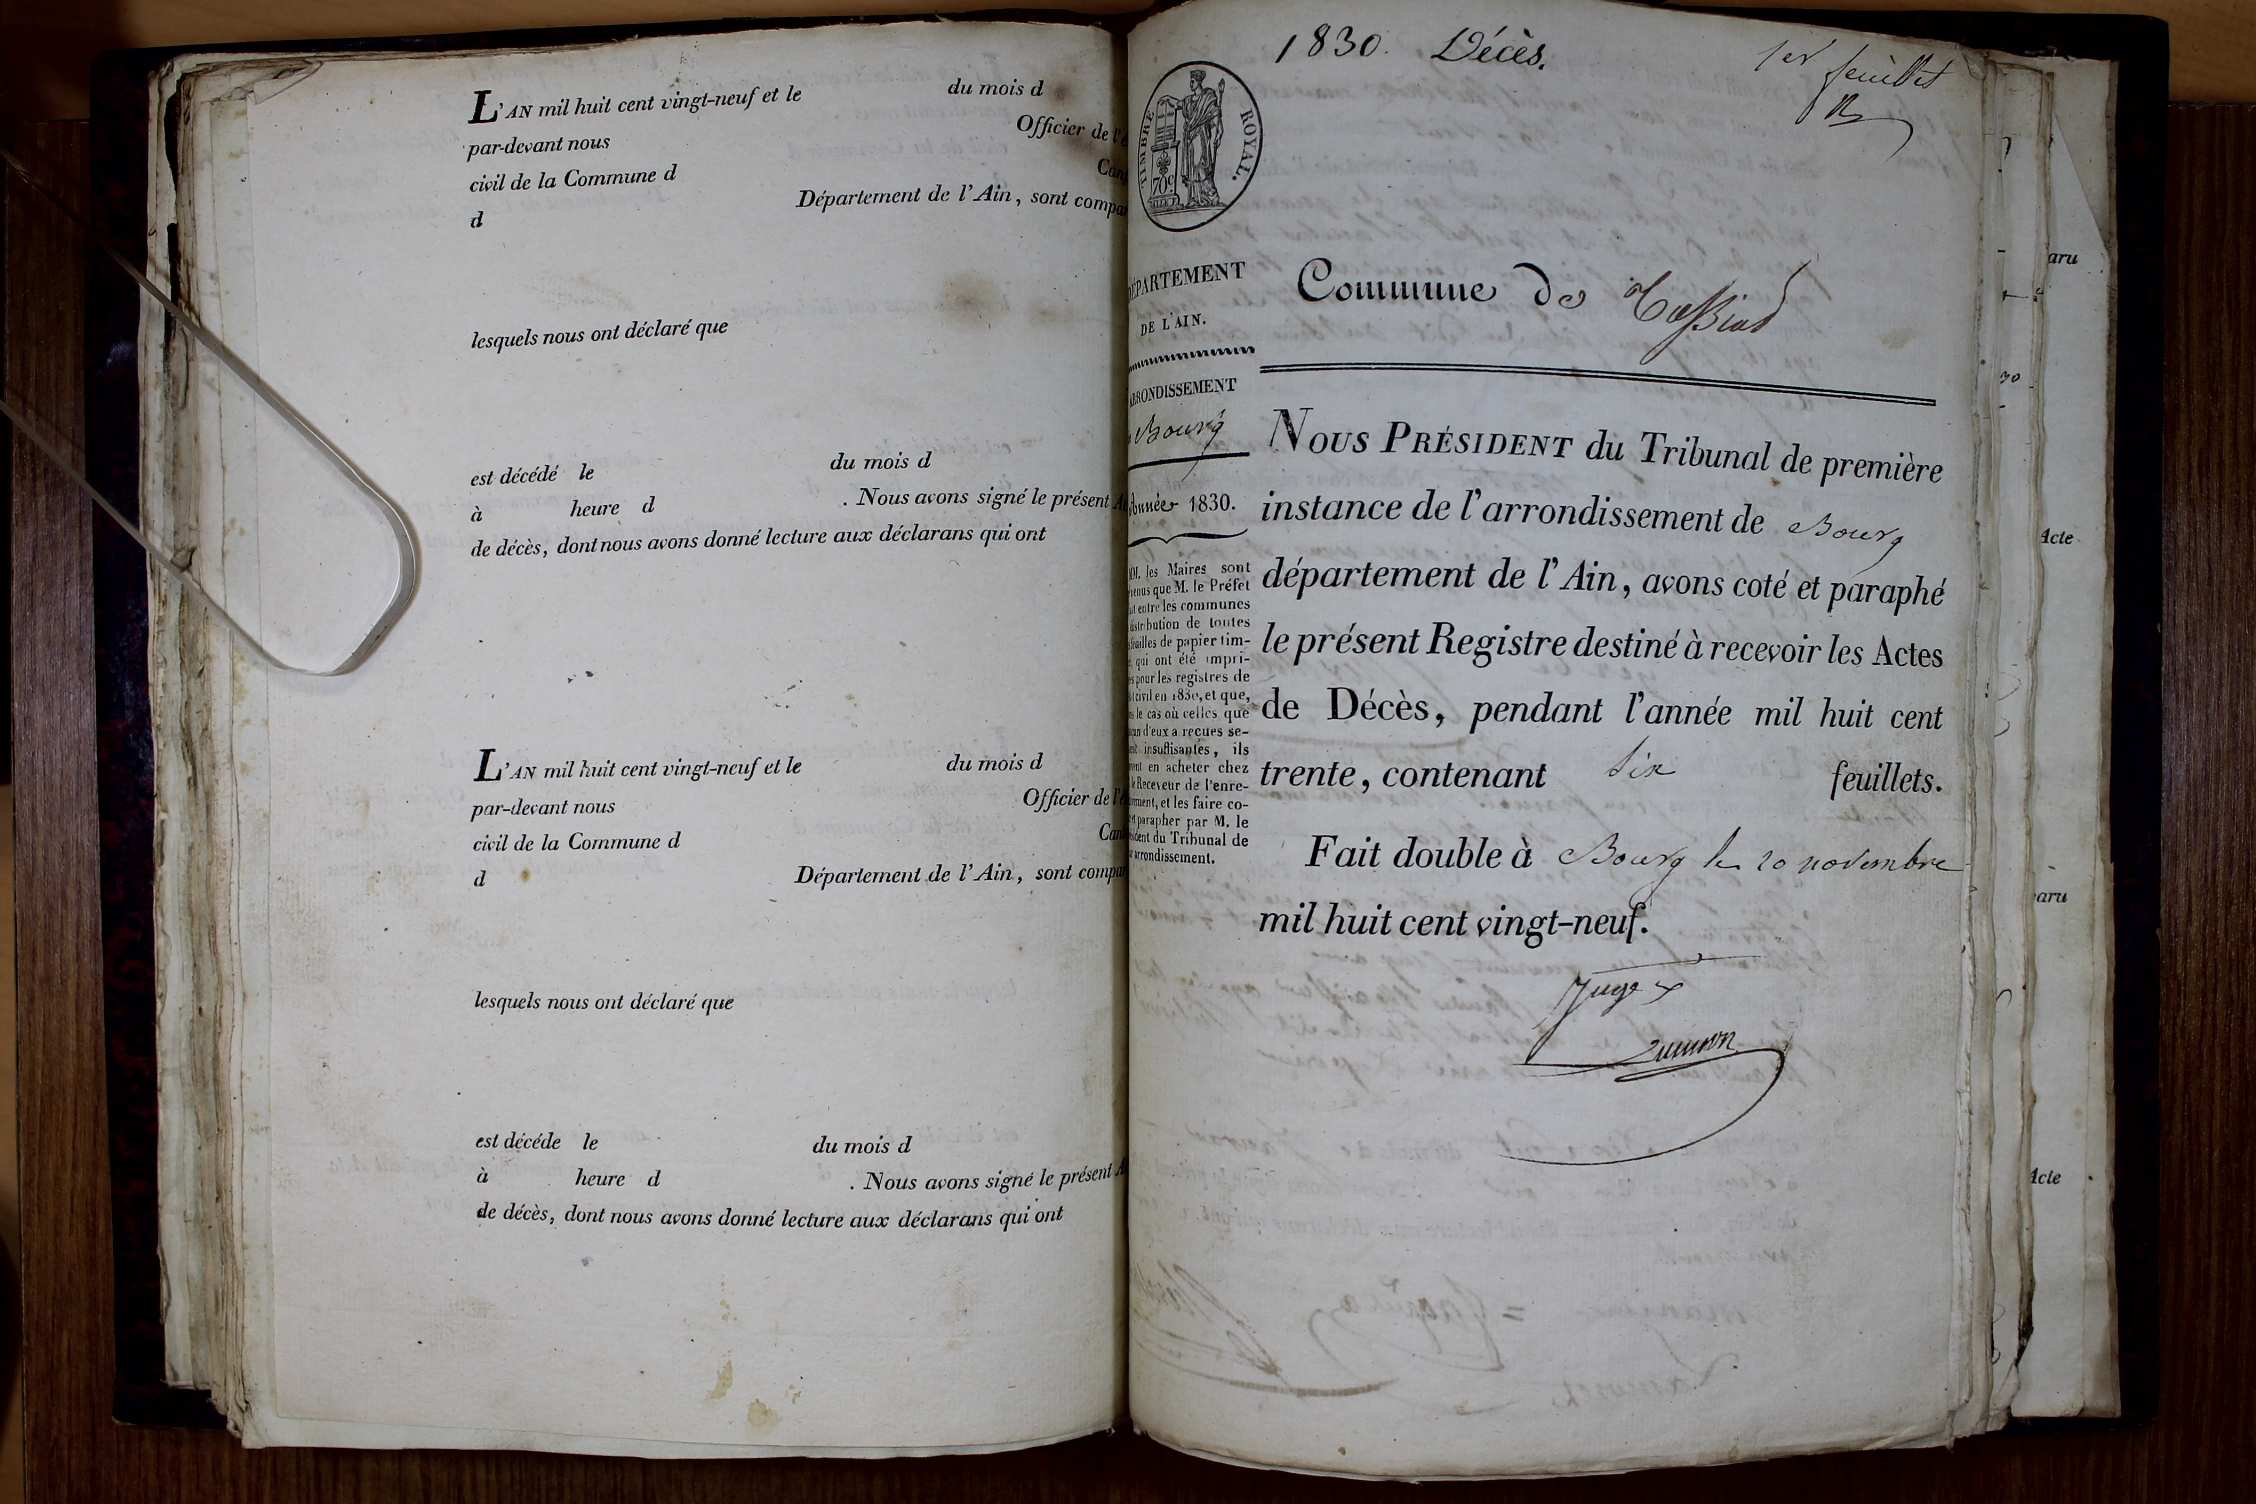 L'AN mil huit cent vingt-neuf et le du mois d
par-devant nous Officier de l'é
civil de la Commune d Can
d Département de l'Ain, sont compar
lesquels nous ont déclaré que
est décédé le du mois d
à heure d . Nous avons signé le présent A
de décès, dont nous avons donné lecture aux déclarans qui ont
L'AN mil huit cent vingt-neuf et le du mois d
par-devant nous Officier de l'é
civil de la Commune d Can
d Département de l'Ain, sont compar
lesquels nous ont déclaré que
est décéde le du mois d
à heure d . Nous avons signé le présent A
de décès, dont nous avons donné lecture aux déclarans qui ont
1830. Décès.
1er feuillet
TIMBRE ROYAL.
70c
DÉPARTEMENT
DE L'AIN.
ARRONDISSEMENT
Bourg
Année 1830.
MM. les Maires sont
venus que M. le Préfet
ait entre les communes
distribution de toutes
feuilles de papier tim-
é, qui ont été impri-
es pour les registres de
t civil en 1830, et que,
ns le cas où celles que
cun d'eux a reçues se-
ent insuffisantes, ils
vront en acheter chez
le Receveur de l'enre-
rement, et les faire co-
et parapher par M. le
sident du Tribunal de
arrondissement.
Commune de
NOUS PRÉSIDENT du Tribunal de première
instance de l'arrondissement de Bourg
département de l'Ain, avons coté et paraphé
le présent Registre destiné à recevoir les Actes
de Décès, pendant l'année mil huit cent
trente, contenant Six feuillets.
Fait double à Bourg le 20 novembre
mil huit cent vingt-neuf.
Juge
aru
30
Acte
aru
Acte